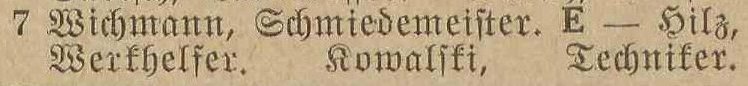 7 Wichmann, Schmiedemeister. E — Hilz,
Werkhelfer. Kowalski, Techniker.